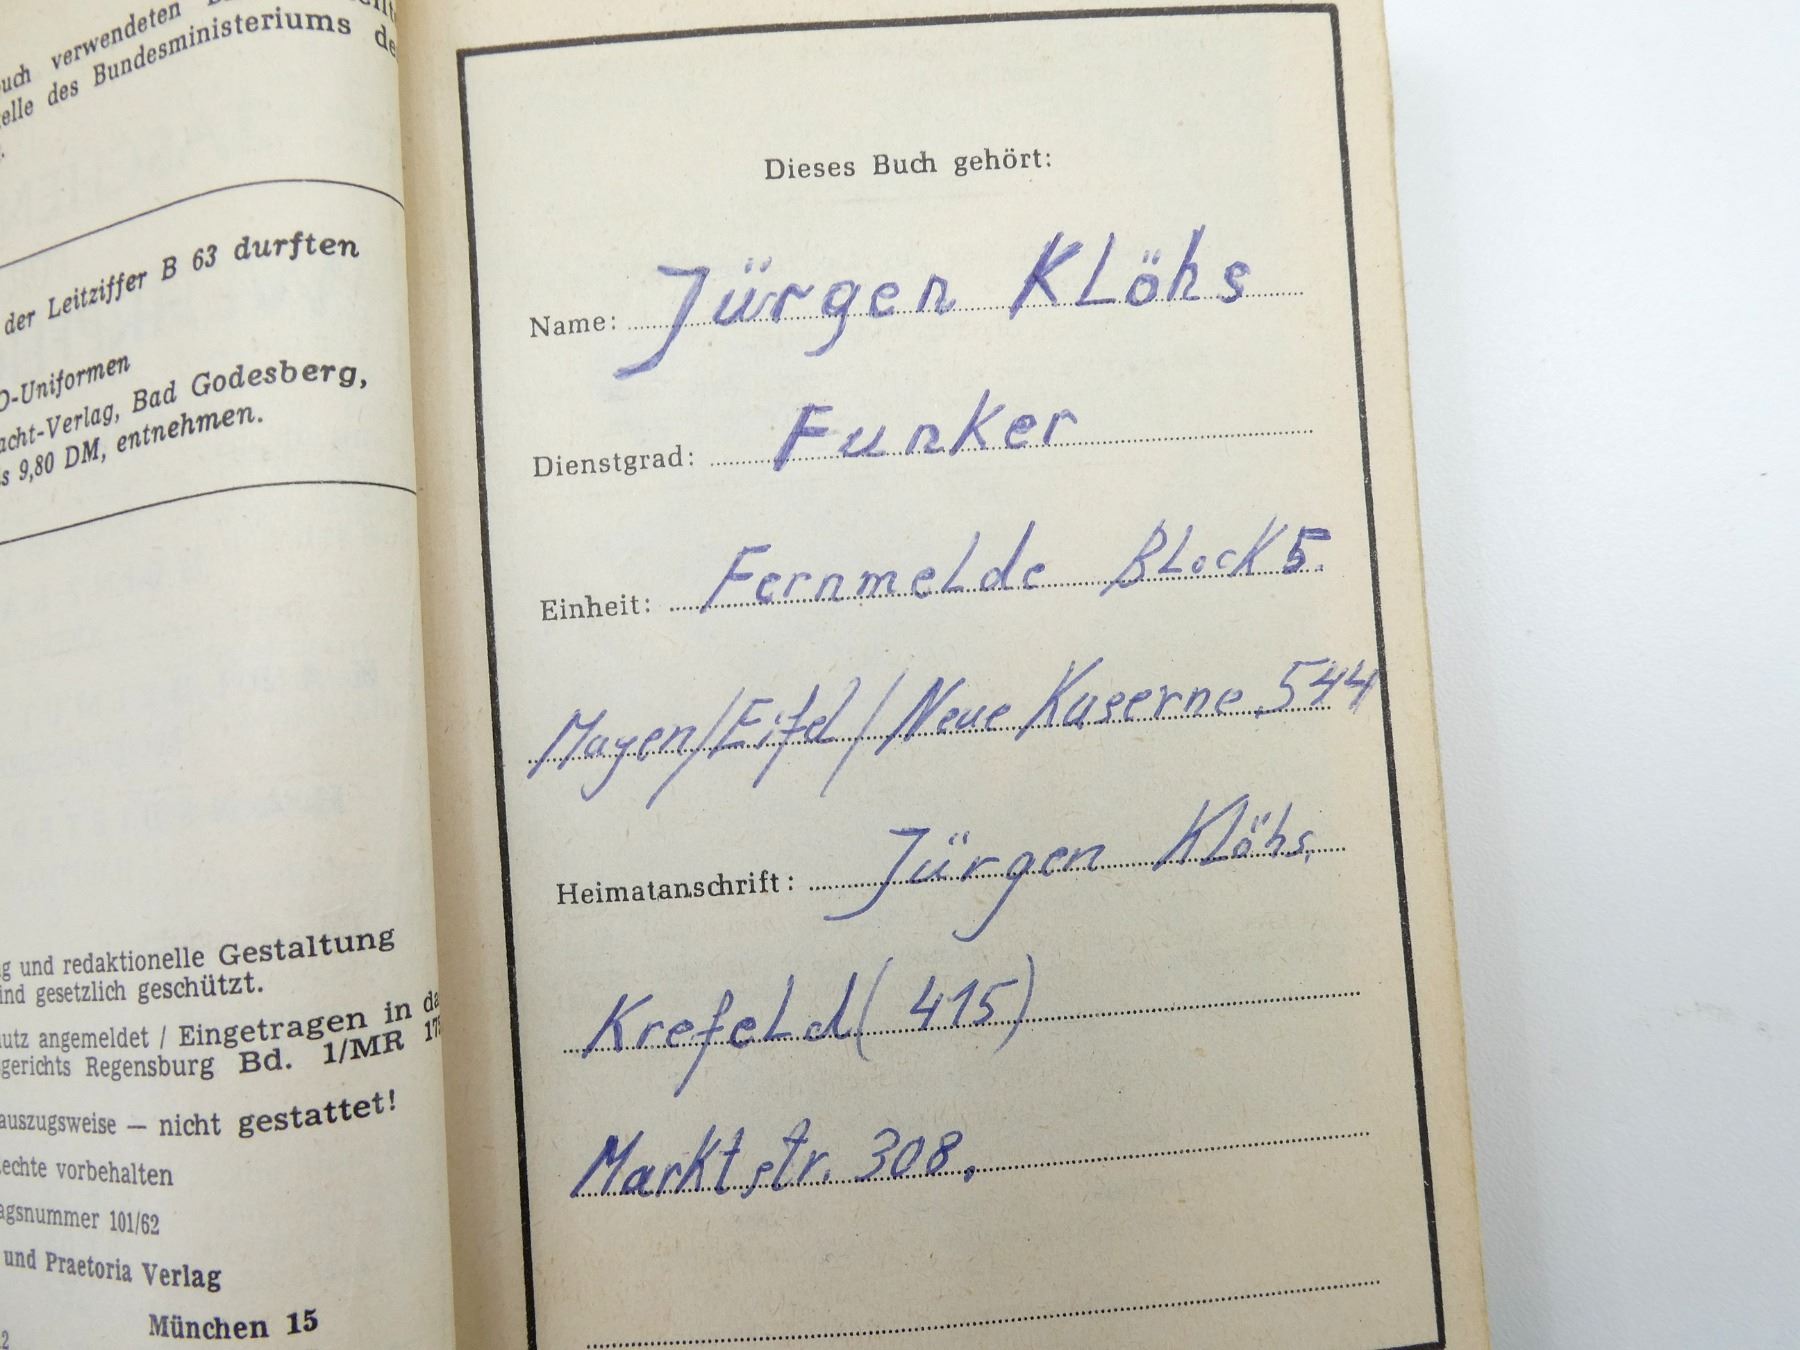 buch verwendeten
telle des Bundesministeriums de
der Leitziffer B 63 durften
O-Uniformen
acht-Verlag, Bad Godesberg,
is 9,80 DM, entnehmen.
g und redaktionelle Gestaltung
ind gesetzlich geschützt.
utz angemeldet / Eingetragen in da
gerichts Regensburg Bd. 1/MR 175
auszugsweise — nicht gestattet!
echte vorbehalten
agsnummer 101/62
und Praetoria Verlag
München 15
Dieses Buch gehört:
Name: Jürgen Klöhs
Dienstgrad: Funker
Einheit: Fernmelde Block 5.
Mayen/Eifel/Neue Kaserne 544
Heimatanschrift: Jürgen Klöhs,
Krefeld (415)
Marktstr. 308.